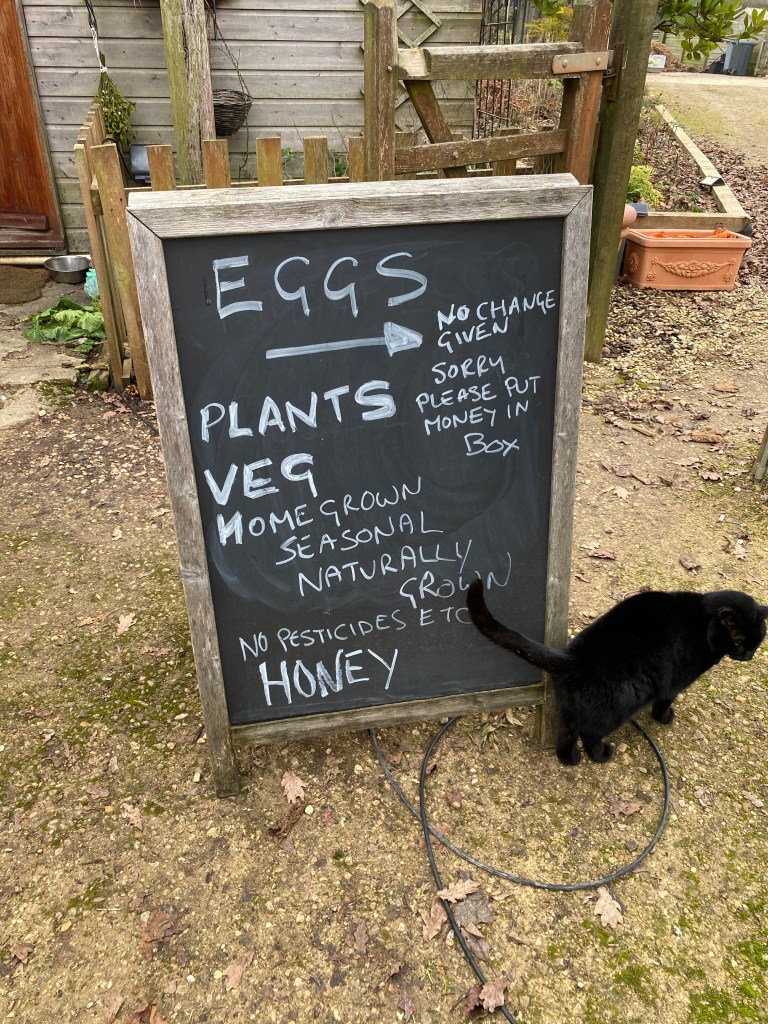 EGGS
NO CHANGE
GIVEN
SORRY
PLEASE PUT
MONEY IN
BOX
PLANTS
VEG
HOME GROWN
SEASONAL
NATURALLY
GROWN
NO PESTICIDES ETC
HONEY